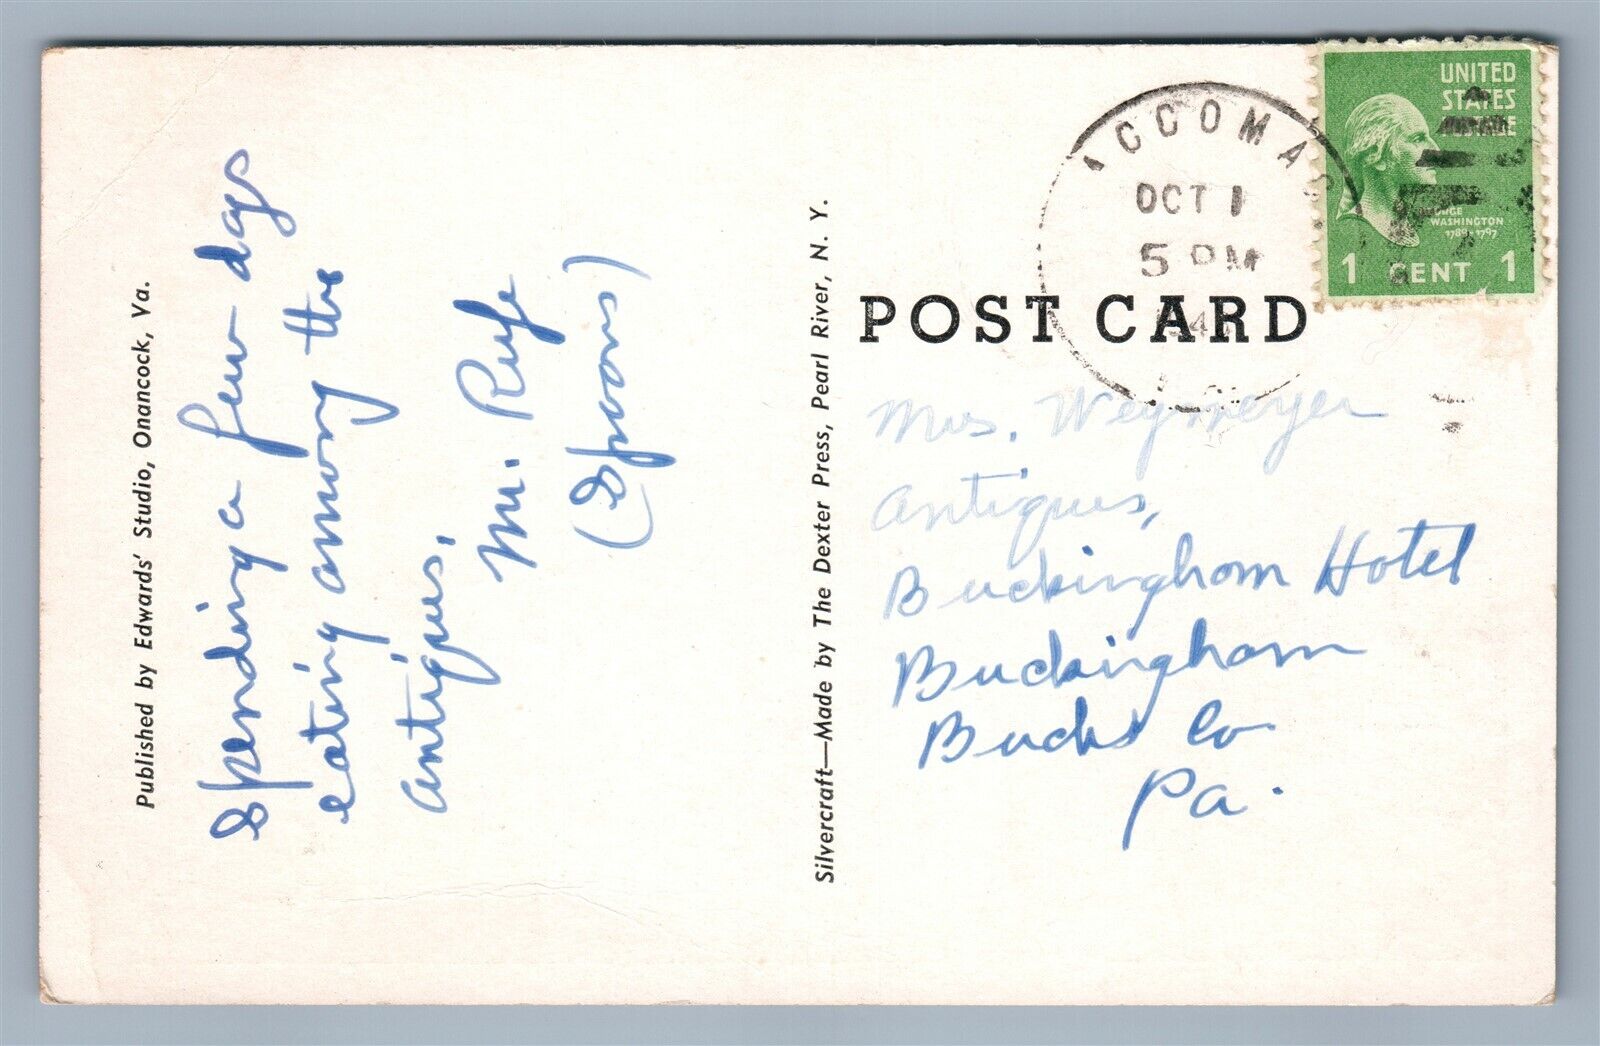 Published by Edwards' Studio, Onancock, Va.
Spending a few days
eating among the
antiques.
M. Rufe
(Spoons)
Silvercraft—Made by The Dexter Press, Pearl River, N. Y.
ACCOMAC
OCT 1
5 PM
UNITED
STATES
GEORGE
WASHINGTON
1789-1797
1 CENT 1
POST CARD
Mrs. Weymeyer
Antiques,
Buckingham Hotel
Buckingham
Bucks Co
Pa.